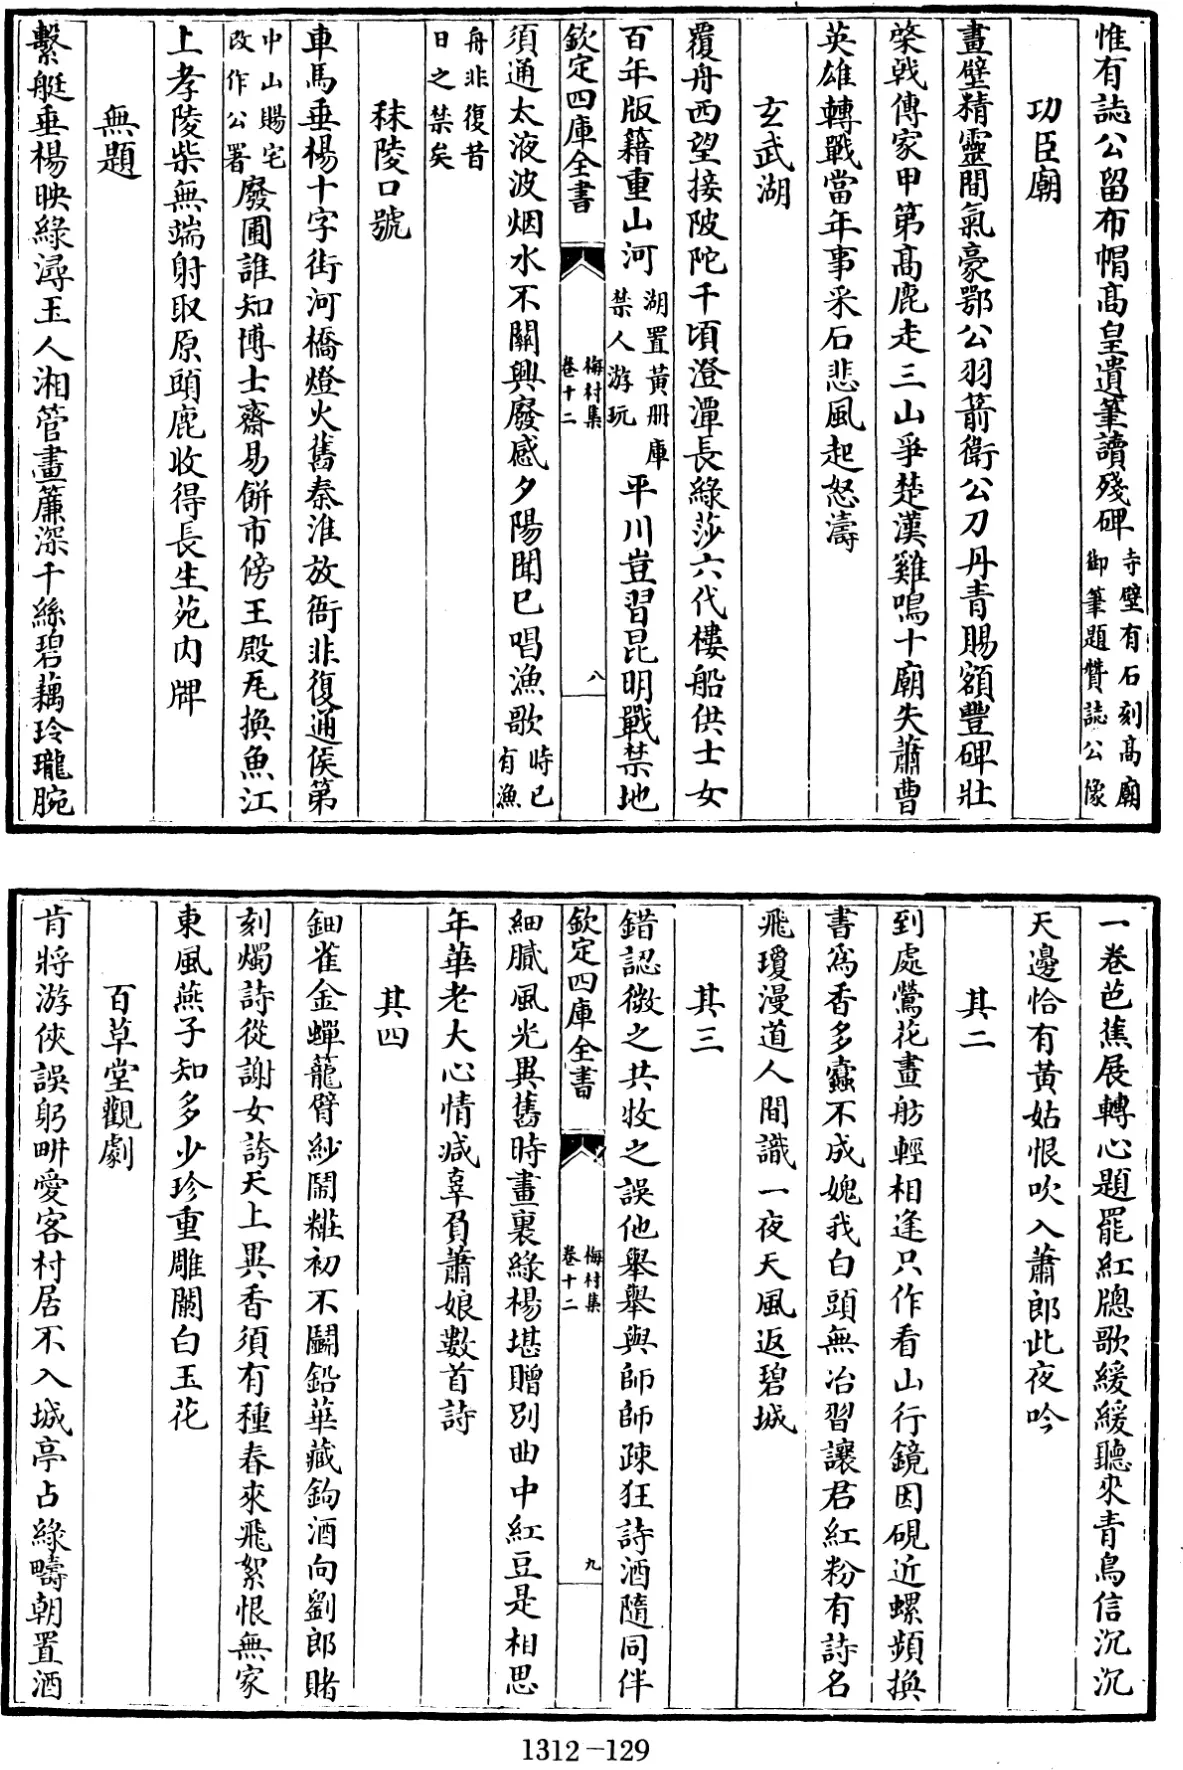 惟有誌公留布帽高皇遺筆讀殘碑寺壁有石刻高廟御筆題贊誌公像
功臣廟
畫壁精靈間氣豪鄂公羽箭衛公刀丹青賜額豐碑壯
棨戟傳家甲第高鹿走三山爭楚漢雞鳴十廟失蕭曹
英雄轉戰當年事采石悲風起怒濤
玄武湖
覆舟西望接陂陀千頃澄潭長綠莎六代樓船供士女
百年版籍重山河湖置黃册庫禁人游玩平川豈習昆明戰禁地
欽定四庫全書
梅村集
卷十二
八
須通太液波烟水不關興廢感夕陽聞已唱漁歌時已有漁
舟非復昔日之禁矣
秣陵口號
車馬垂楊十字街河橋燈火舊秦淮放衙非復通侯第
中山賜宅改作公署廢圃誰知博士齋易餅市傍王殿瓦換魚江
上孝陵柴無端射取原頭鹿收得長生苑内牌
無題
繫艇垂楊映綠潯玉人湘管畫簾深千絲碧藕玲瓏腕
一卷芭蕉展轉心題罷紅牕歌緩緩聽來青鳥信沉沉
天邊恰有黃姑恨吹入蕭郎此夜吟
其二
到處鶯花畫舫輕相逢只作看山行鏡因硯近螺頻換
書爲香多蠹不成媿我白頭無冶習讓君紅粉有詩名
飛瓊漫道人間識一夜天風返碧城
其三
錯認微之共牧之誤他舉舉與師師疎狂詩酒隨同伴
欽定四庫全書
梅村集
卷十二
九
細膩風光異舊時畫裏綠楊堪贈别曲中紅豆是相思
年華老大心情減辜負蕭娘數首詩
其四
鈿雀金蟬籠臂紗鬧粧初不鬭鉛華藏鉤酒向劉郎賭
刻燭詩從謝女誇天上異香須有種春來飛絮恨無家
東風燕子知多少珍重雕闌白玉花
百草堂觀劇
肯將游俠誤躬畊愛客村居不入城亭占綠疇朝置酒
1312-129